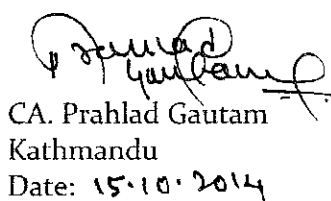 Prahlad
Gautam
CA. Prahlad Gautam
Kathmandu
Date: 15.10.2014